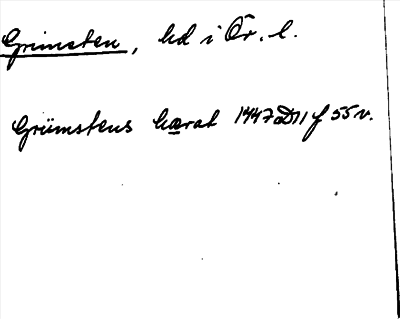 Grimsten, hd i Ör. l.
Grimstens hærat 1447 D 11 f 55 v.